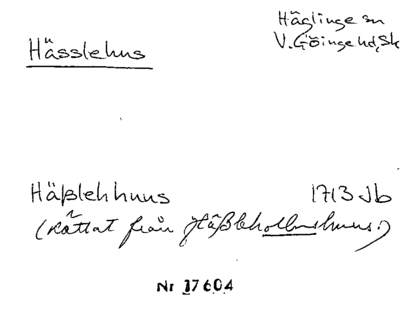 Hässlehus
Häglinge sn
V. Göinge hd, Sk
Häßlehhuus 1713 Jb
(rättat från Häßleholmshuus!)
Nr 17604